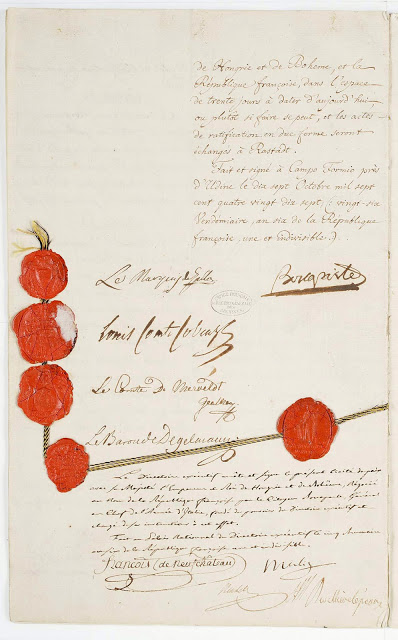 de Hongrie et de Bohême, et la
République françoise, dans l'espace
de trente jours à dater d'aujourd'hui
ou plutôt si faire se peut, et les actes
de ratification en due forme seront
échangés à Rastadt.
Fait et signé à Campo Formio près
d'Udine le dix sept Octobre mil sept
cent quatre vingt dix sept, (vingt-six
Vendemiaire, an six de la République
françoise, une et Indivisible.)
Le Marquis de Gallo
Bonaparte
Louis Comte Cobenzl
Le Comte de Merveldt
Le Baron de Degelmann
Le Directoire exécutif arrête et signe le présent traité de paix
avec sa Majesté l'Empereur, Roi de Hongrie et de Bohême, Négocié
au nom de la République française, par le Citoyen Bonaparte, Général
en Chef de l'Armée d'Italie, fondé de pouvoirs du Directoire exécutif et
chargé de ses instructions à cet effet.
Fait au Palais National du Directoire exécutif le cinq Brumaire
an six de la République française une et indivisible.
François (de Neufchâteau)
Merlin